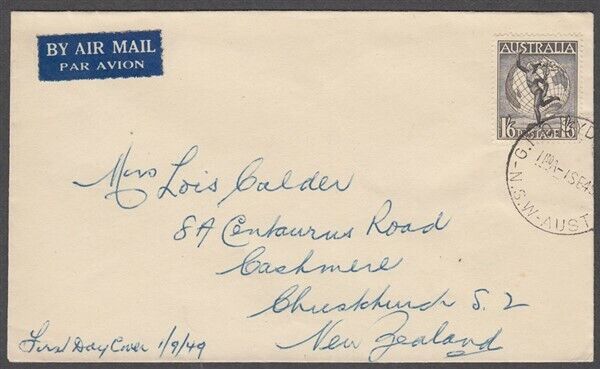 BY AIR MAIL
PAR AVION
AUSTRALIA
1/6 POSTAGE 1/6
G.P.O. SYD
1 SE 49
N.S.W-AUST
Miss Lois Calder
8A Centaurus Road
Cashmere
Christchurch S. 2
New Zealand
First Day Cover 1/9/49